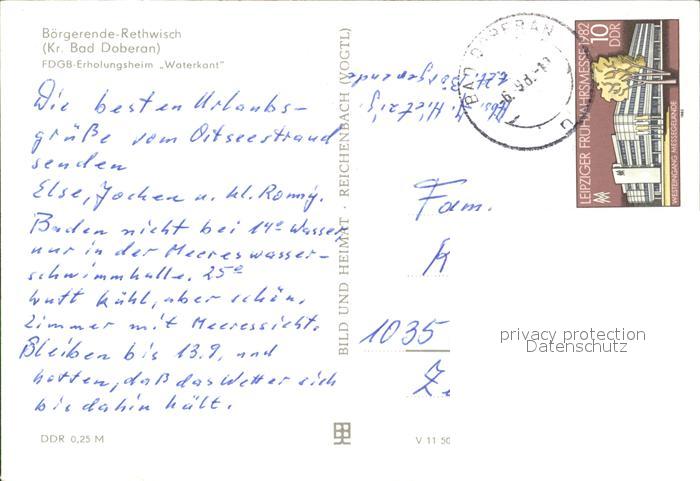 Börgerende-Rethwisch
(Kr. Bad Doberan)
FDGB-Erholungsheim „Waterkant"
Die besten Urlaubs-
grüße vom Ostseestrand
senden
Else, Jochen u. kl. Ronny.
Baden nicht bei 14° Wasser
nur in der Meereswasser-
schwimmhalle. 25°
Luft kühl, aber schön.
Zimmer mit Meeressicht.
Bleiben bis 13.9. und
hoffen, daß das Wetter sich
bis dahin hält.
DDR 0,25 M
BILD UND HEIMAT · REICHENBACH (VOGTL)
V 11 50
Abs. H. Hietzig
z.Zt. Börgerende
BAD DOBERAN
LEIPZIGER FRÜHJAHRSMESSE 1982
10
DDR
WESTEINGANG MESSEGELÄNDE
Fam.
K
1035
privacy protection
Datenschutz